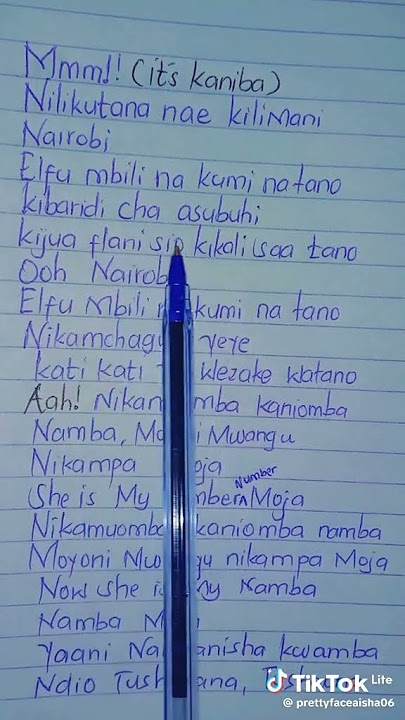 Mmm!! (it's kaniba)
Nilikutana nae kilimani
Nairobi
Elfu mbili na kumi natano
kibaridi cha asubuhi
kijua flani sio kikali (saa tano
Ooh Nairob
Elfu Mbili kumi na tano
Nikamchagu yeye
kati kati wezake watano
Aah! Nikam mba kaniomba
Namba, Mo i Mwangu
Nikampa oja
She is My mber Number Moja
Nikamuomba kaniomba namba
Moyoni Mwa gu nikampa Moja
Now she i My Namba
Namba M
Yaani Na anisha kwamba
Ndio Tush ana,
TikTok Lite
@prettyfaceaisha06